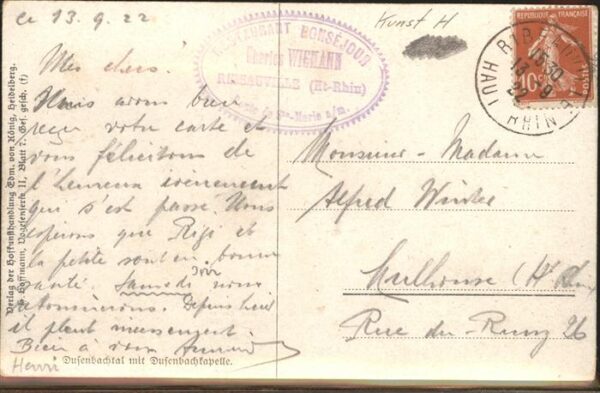 ce 13.9.22
Mes chers!
Nous avons bien
reçu votre carte et
vous félicitons de
l'heureux événement
qui s'est passé. Nous
espérons que et
la petite sont en bonne
santé. Samedi nous
retournerons. Depuis hier
il pleut
Bien à vous
Henri
RESTAURANT BONSÉJOUR
Charles WICMANN
RIBEAUVILLÉ (Ht-Rhin)
Ste-Marie a/m.
Kunst H
REPUBLIQUE FRANÇAISE
10c
POSTES
HAUT RHIN
Monsieur - Madame
Alfred
Mulhouse (Ht Rhin)
Rue du 26
Verlag der Hofkunsthandlung Edm. von König, Heidelberg.
Hoffmann, Vogesenserie II, Blatt 7. Ges. gesch. (f)
Dusenbachtal mit Dusenbachkapelle.